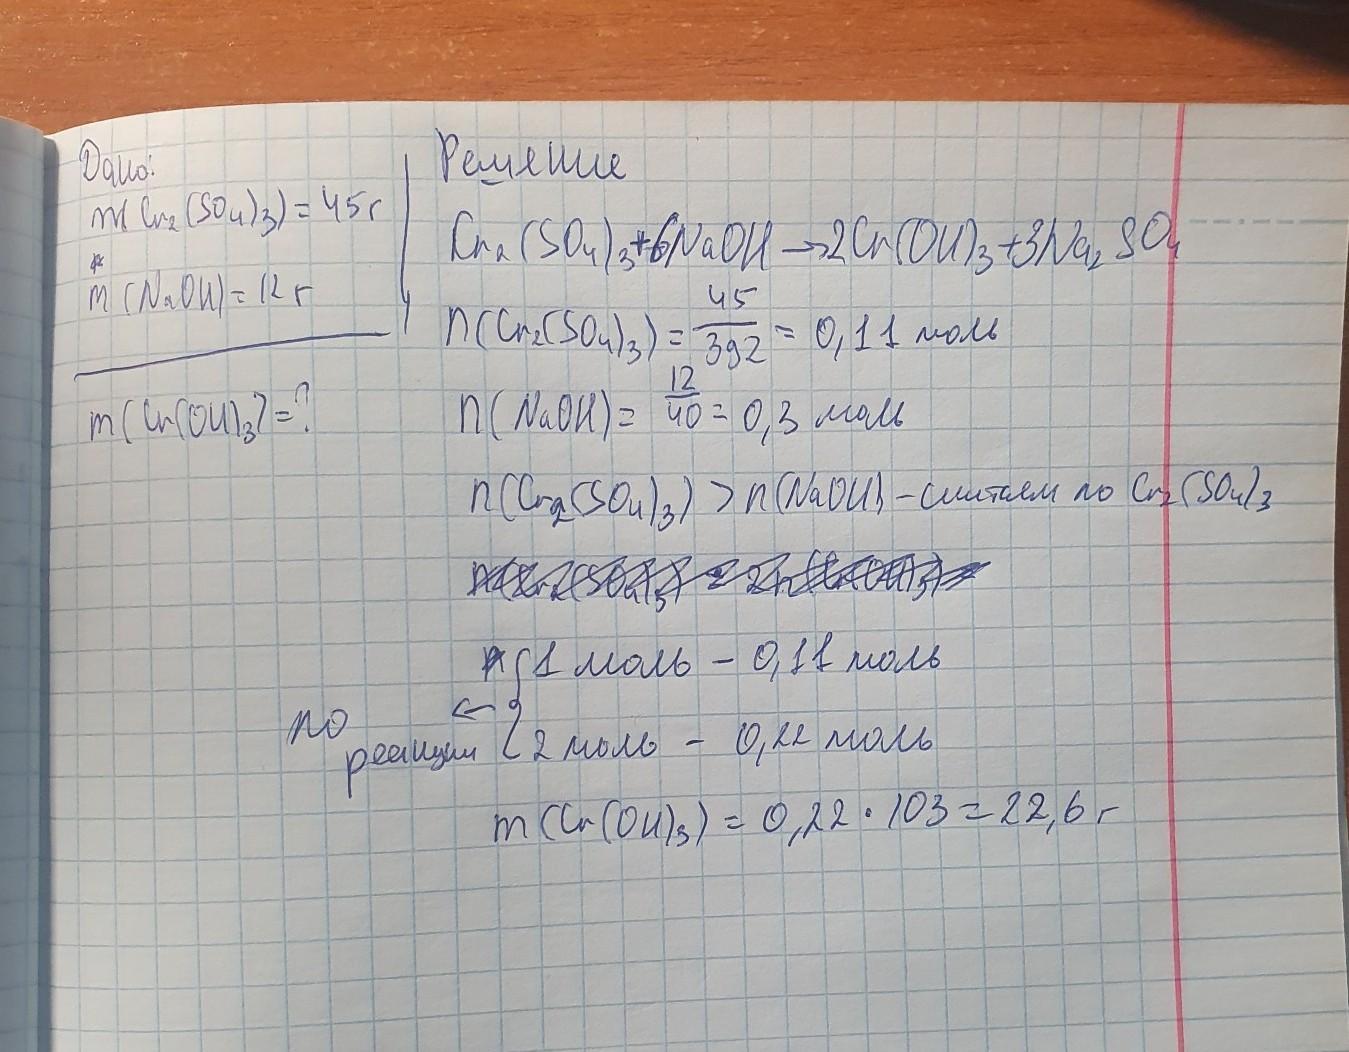 Дано:
m(Cr₂(SO₄)₃) = 45 г
m(NaOH) = 12 г
m(Cr(OH)₃) = ?
Решение
Cr₂(SO₄)₃ + 6NaOH → 2Cr(OH)₃ + 3Na₂SO₄
n(Cr₂(SO₄)₃) = 45/392 = 0,11 моль
n(NaOH) = 12/40 = 0,3 моль
n(Cr₂(SO₄)₃) > n(NaOH) – считаем по Cr₂(SO₄)₃
1 моль – 0,11 моль
по реакции ←
2 моль – 0,22 моль
m(Cr(OH)₃) = 0,22 · 103 = 22,6 г